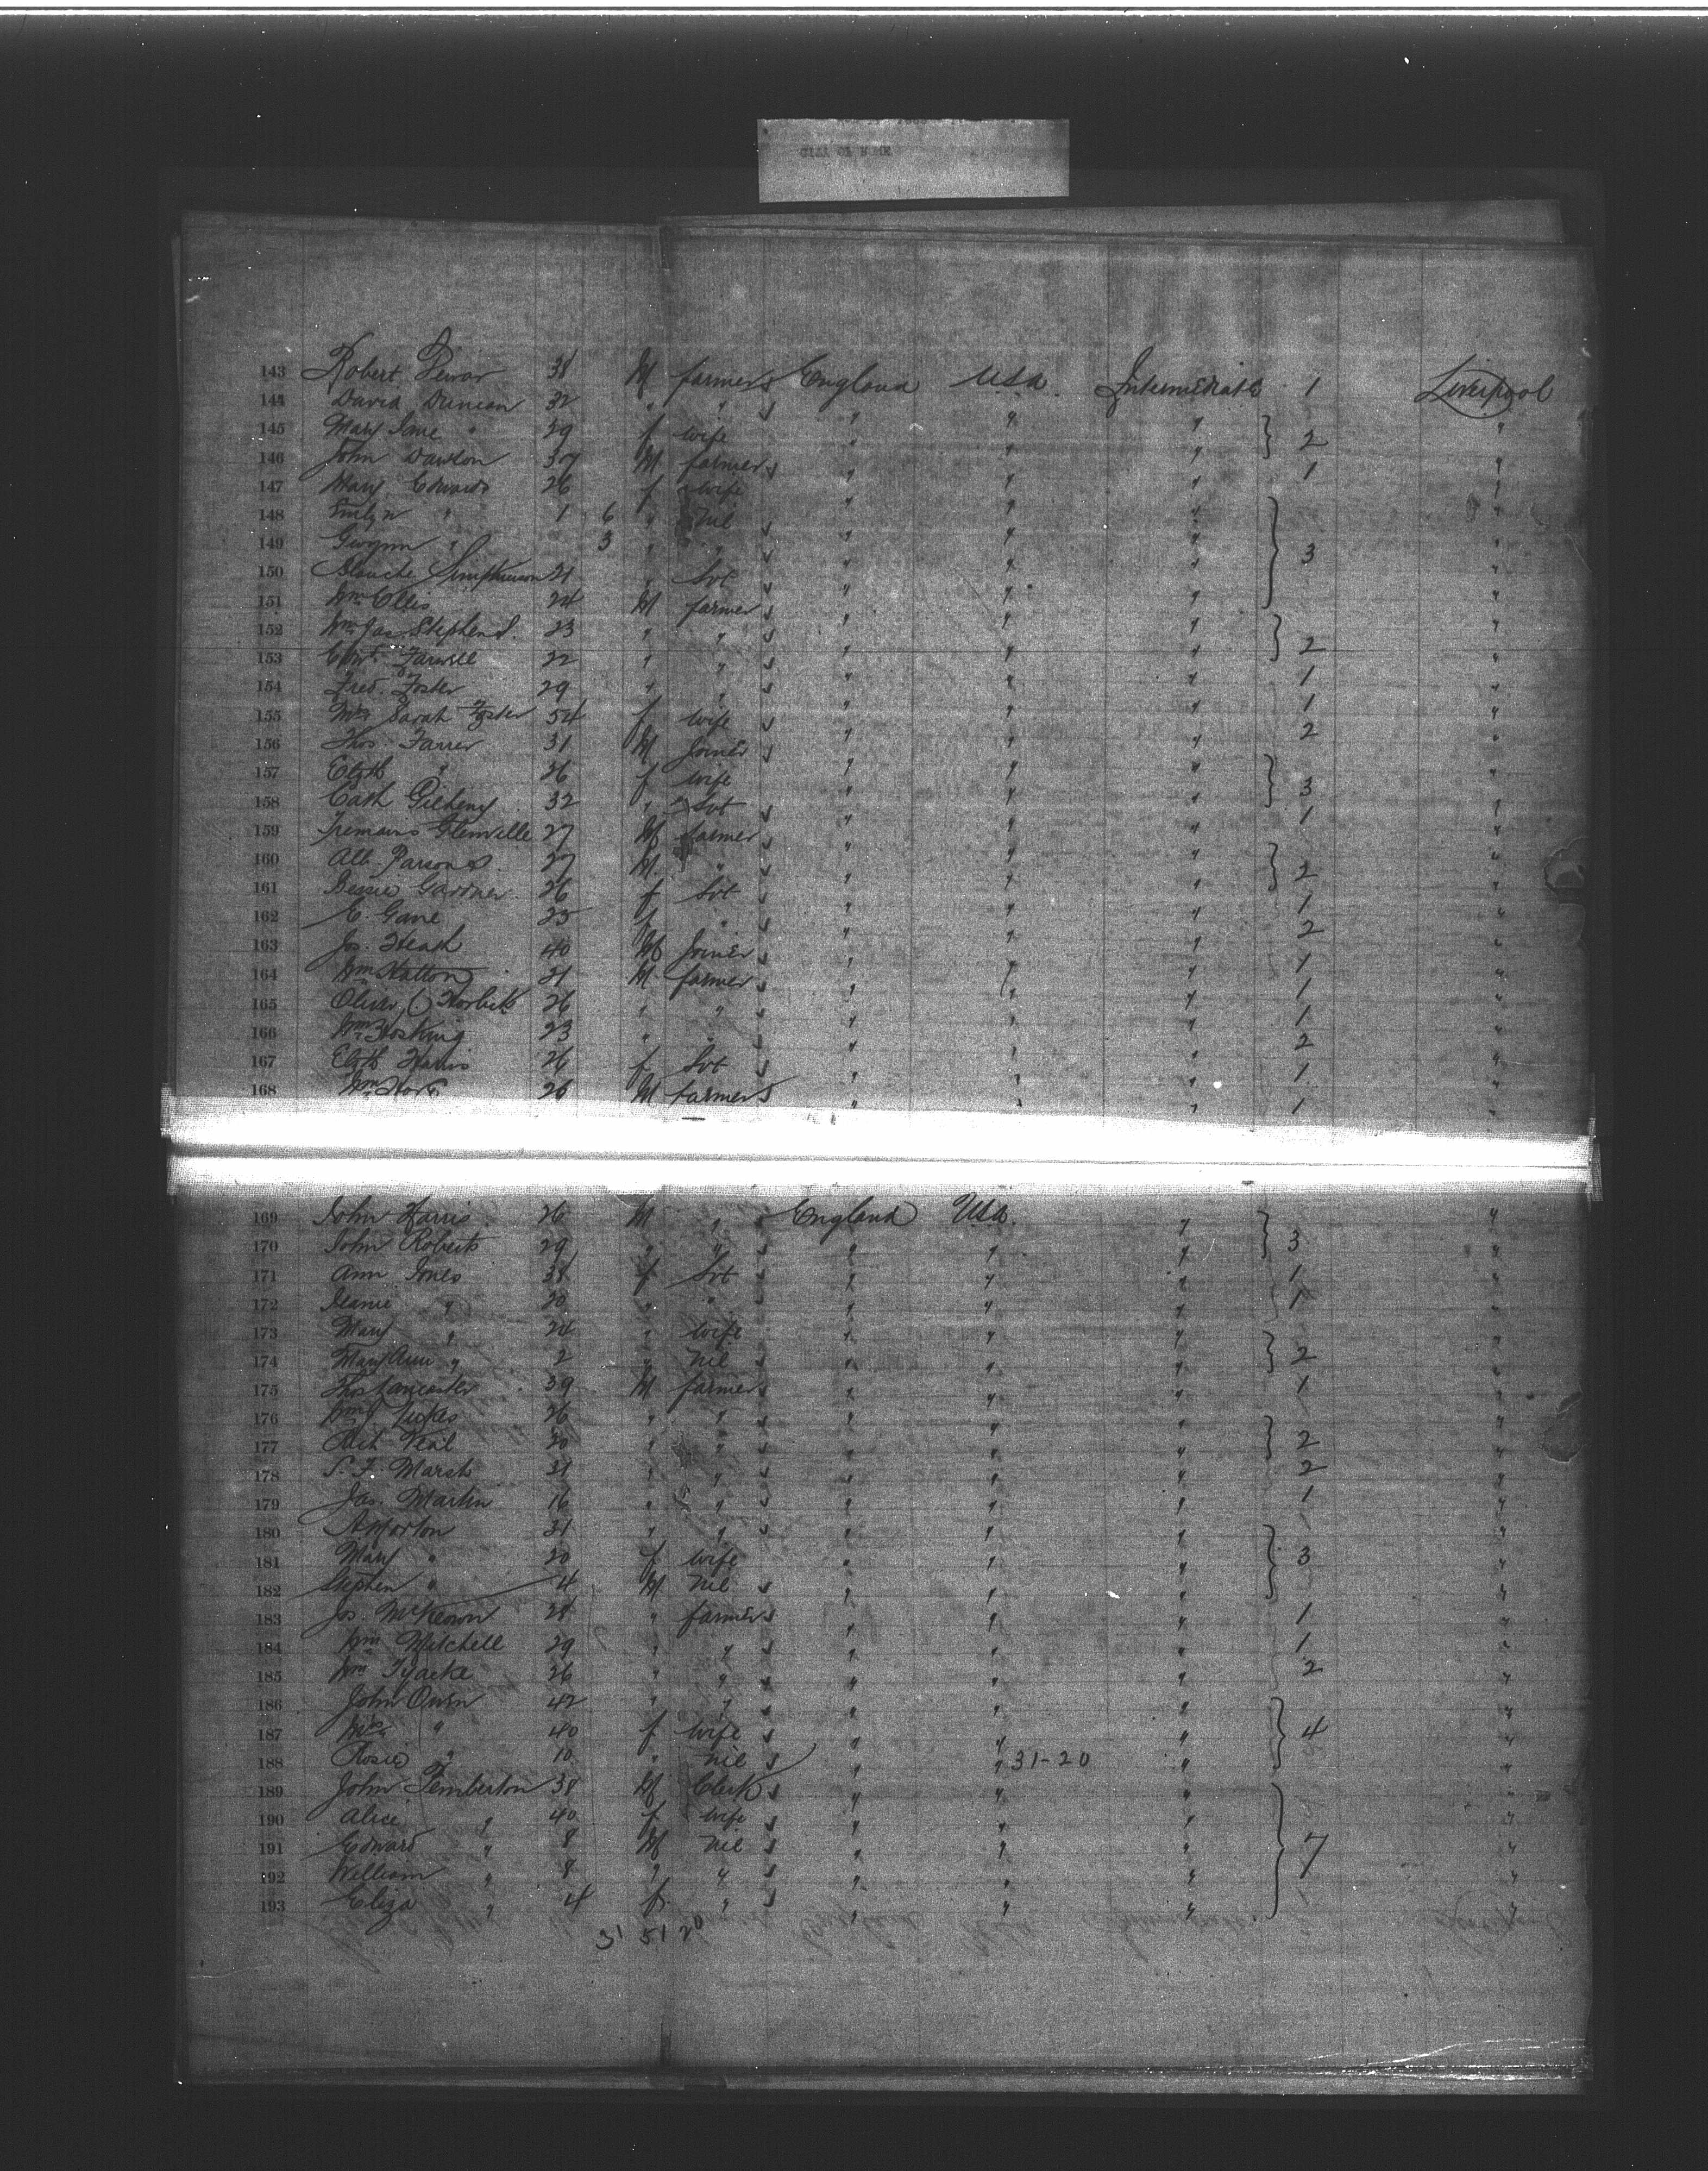 143 Robert Dewar 38 M farmer England USA Intermediate 1 Liverpool
144 David Duncan 32 " " " " "
145 Mary Jane " 29 f wife " " " 2 "
146 John Dawson 37 M farmer " " " 1 "
147 Mary Edwards 26 f wife " " " "
148 Emlyn " 1 6 " nil " " " "
149 Gwynn " 3 " " " " " 3 "
150 Blanche 21 " Svt " " " "
151 Wm Ellis 24 M farmer " " " "
152 Wm Jas Stephens 23 " " " " " 2 "
153 Farwell 22 " " " " " 1 "
154 Fred. Foster 29 " " " " " 1 "
155 Mrs Sarah Foster 54 f wife " " " 2 "
156 Thos. Farrer 31 M Joiner " " " "
157 Elzth " 26 f wife " " " 3 "
158 Cath Gilheny 32 " Svt " " " 1 "
159 Glenville 27 M farmer " " " "
160 Alb. Parsons 27 M " " " " 2 "
161 Bessie Gardner 26 f Svt " " " 1 "
162 E. Gane 25 f " " " " 2 "
163 Jos. Heath 40 M Joiner " " " 1 "
164 Wm Hatton 21 M farmer " " " 1 "
165 Oliver 26 " " " " " 1 "
166 Wm Hosking 23 " " " " " 2 "
167 Elzth Harris 26 f Svt " " " 1 "
168 Wm 26 M farmer " " " 1 "
169 John Harris 26 M " England USA " "
170 John Roberts 29 " " " " " 3 "
171 Ann Jones 38 f Svt " " " 1 "
172 " 20 " " " " " 1 "
173 Mary " 24 " wife " " " "
174 Mary Ann " 2 " nil " " " 2 "
175 Thos Lancaster 39 M farmer " " " 1 "
176 Wm J. 26 " " " " " "
177 Veal 20 " " " " " 2 "
178 S. F. Marsh 21 " " " " " 2 "
179 Jas. Martin 16 " " " " " 1 "
180 A Morton 31 " " " " " "
181 Mary " 20 f wife " " " 3 "
182 Stephen " 4 M nil " " " "
183 Jos. McKeown 28 " farmer " " " 1 "
184 Wm Mitchell 29 " " " " " 1 "
185 Wm Tyacke 26 " " " " " 2 "
186 John Owen 42 " " " " " "
187 Mrs " 40 f wife " " " 4 "
188 Rosie " 10 " nil " " 31-20 " "
189 John Pemberton 38 M Clerk " " " "
190 Alice " 40 f wife " " " "
191 Edward " 8 M nil " " " 7 "
192 William " 8 " " " " " "
193 Eliza " 4 f " " " " "
31 51 20